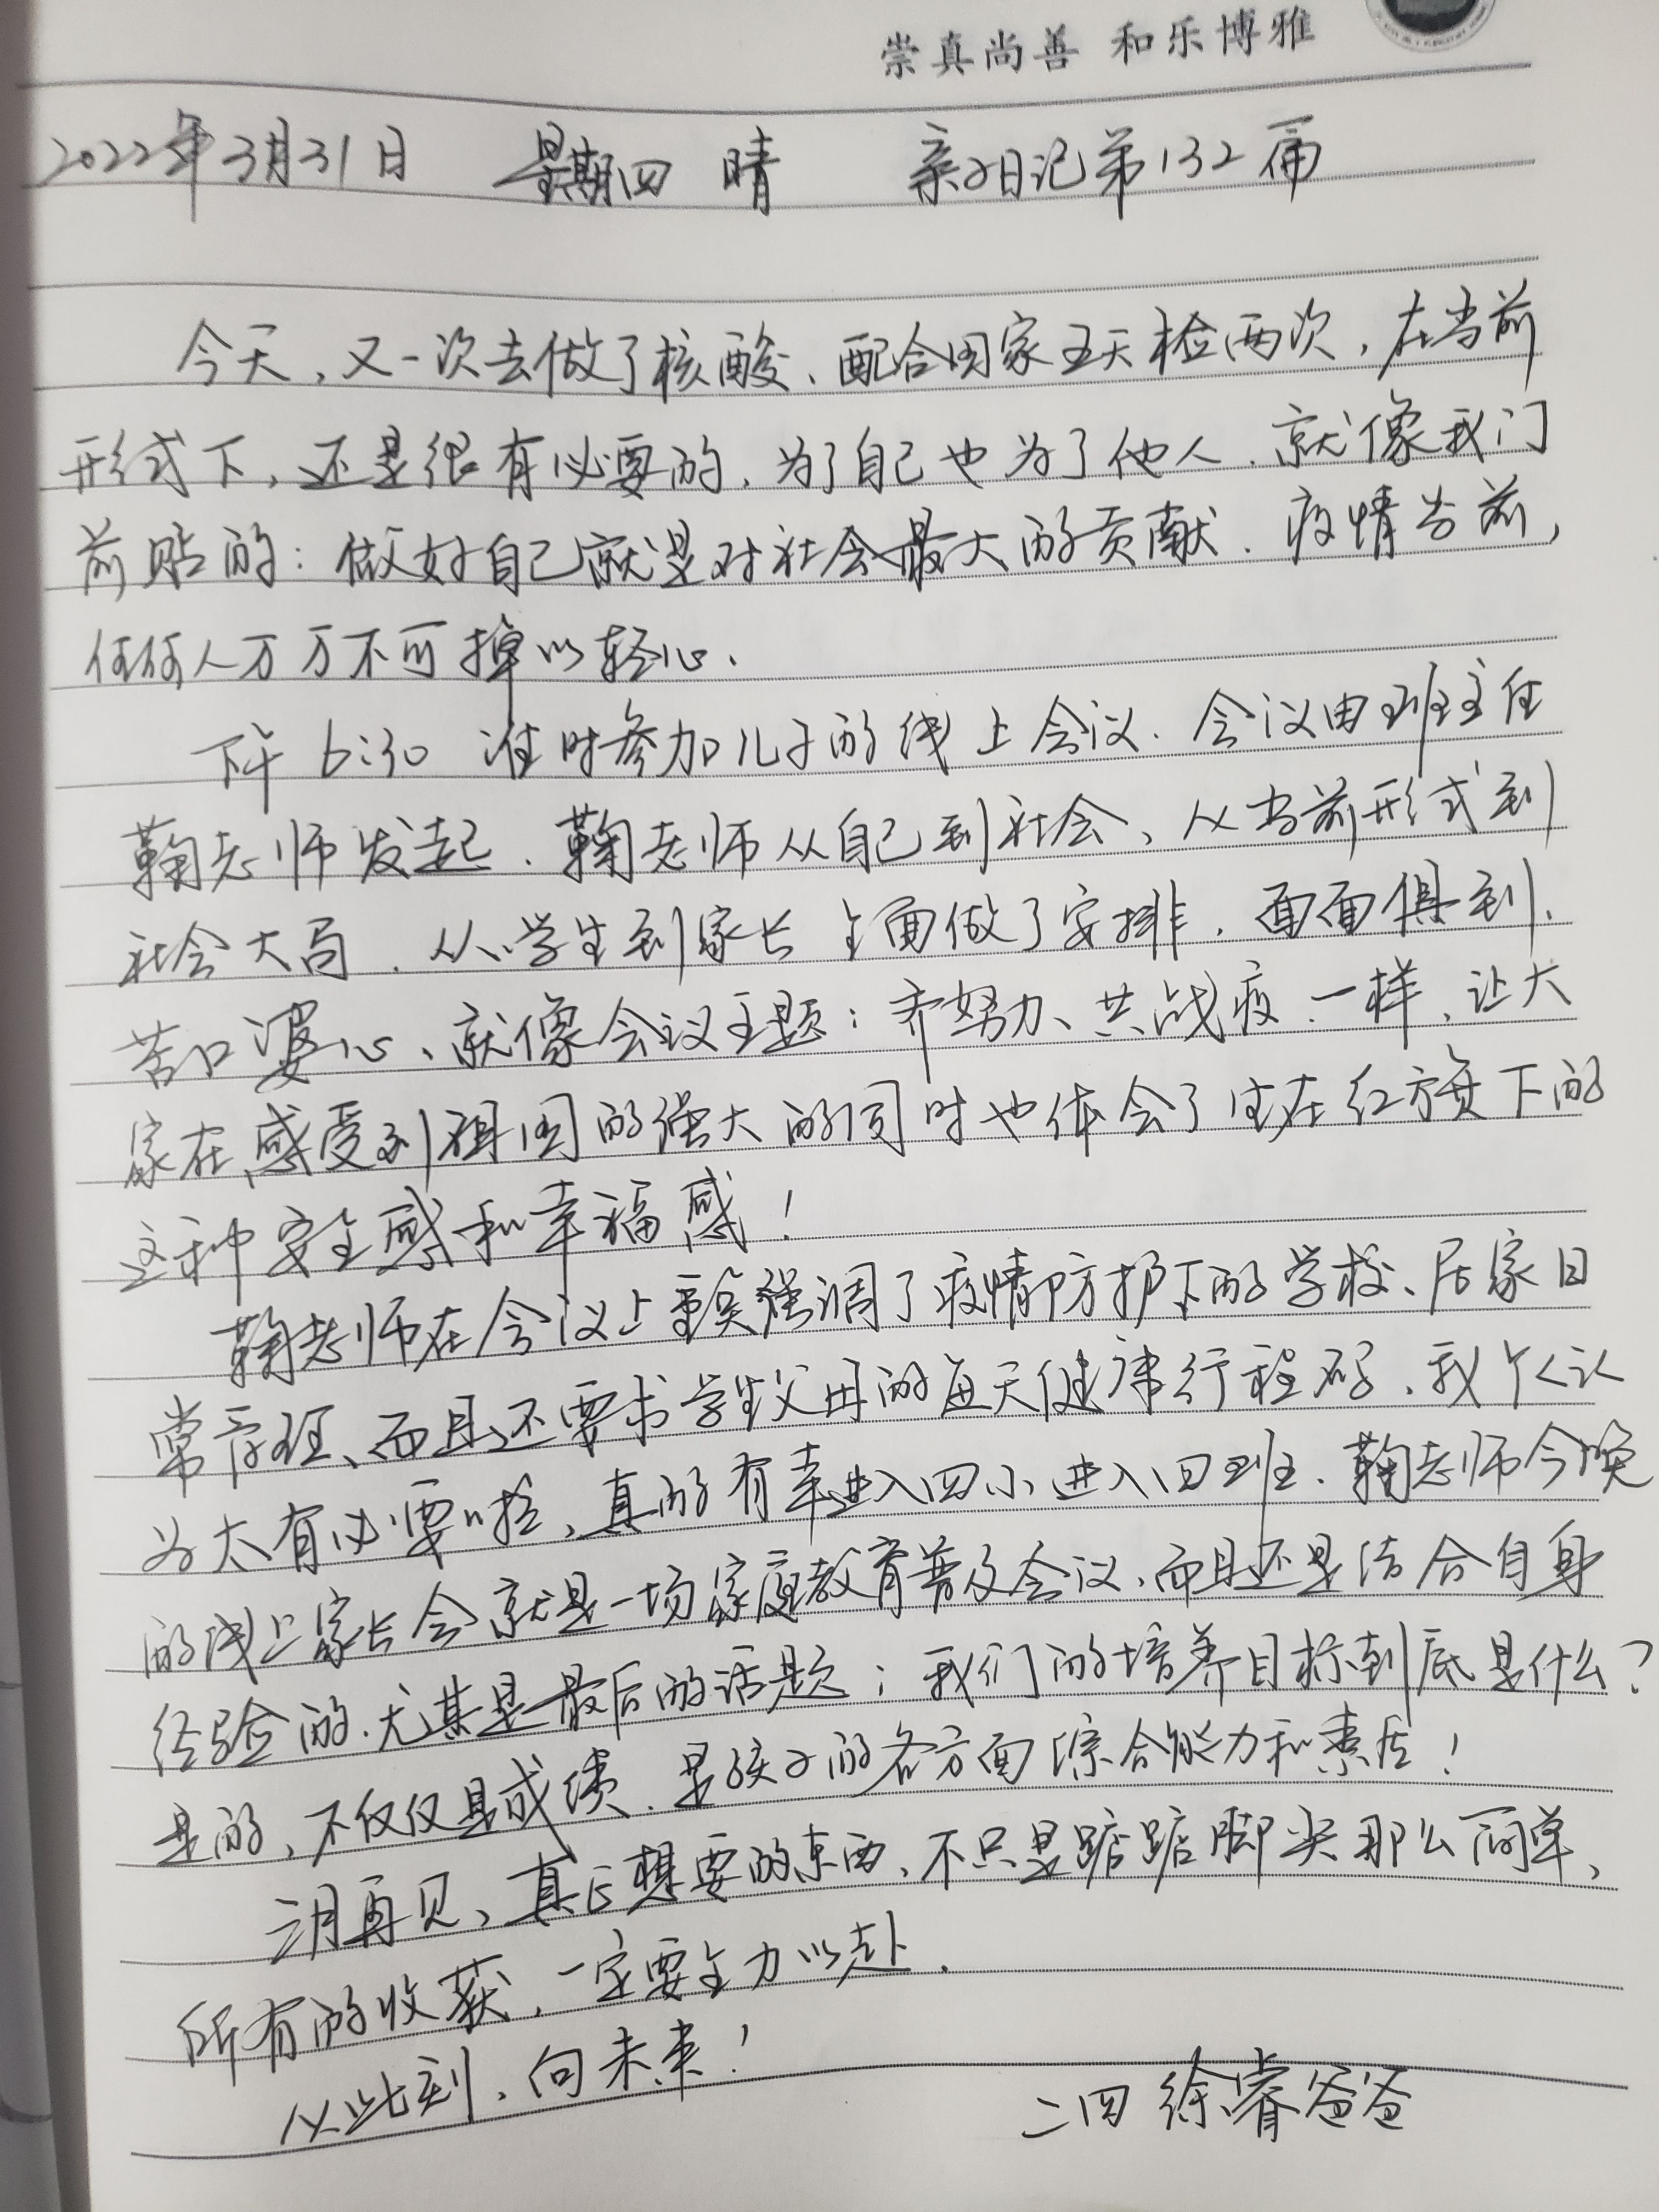 崇真尚善 和乐博雅
2022年3月31日 星期四 晴 亲子日记第132篇
今天,又一次去做了核酸、配合国家五天检两次,在当前
形式下,还是很有必要的,为了自己也为了他人.就像我门
前贴的:做好自己就是对社会最大的贡献.疫情当前,
任何人万万不可掉以轻心.
下午6:30 准时参加儿子的线上会议.会议由班主任
鞠老师发起.鞠老师从自己到社会、从当前形式到
社会大局.从学生到家长全面做了安排.面面俱到.
苦口婆心、就像会议主题:齐努力、共战疫.一样、让大
家在感受到祖国的强大的同时也体会了生在红旗下的
这种安全感和幸福感!
鞠老师在会议上重点强调了疫情防护下的学校、居家日
常管理、而且还要求学生父母的每天健康行程码、我个人认
为太有必要啦,真的有幸进入四小进入四班.鞠老师今晚
的线上家长会就是一场家庭教育普及会议、而且还是结合自身
经验的.尤其是最后的话题:我们的培养目标到底是什么?
是的、不仅仅是成绩.是孩子的各方面综合能力和素质!
三月再见、真正想要的东西、不只是踮踮脚尖那么简单、
所有的收获,一定要全力以赴.
从此刻、向未来!
二四 徐睿爸爸